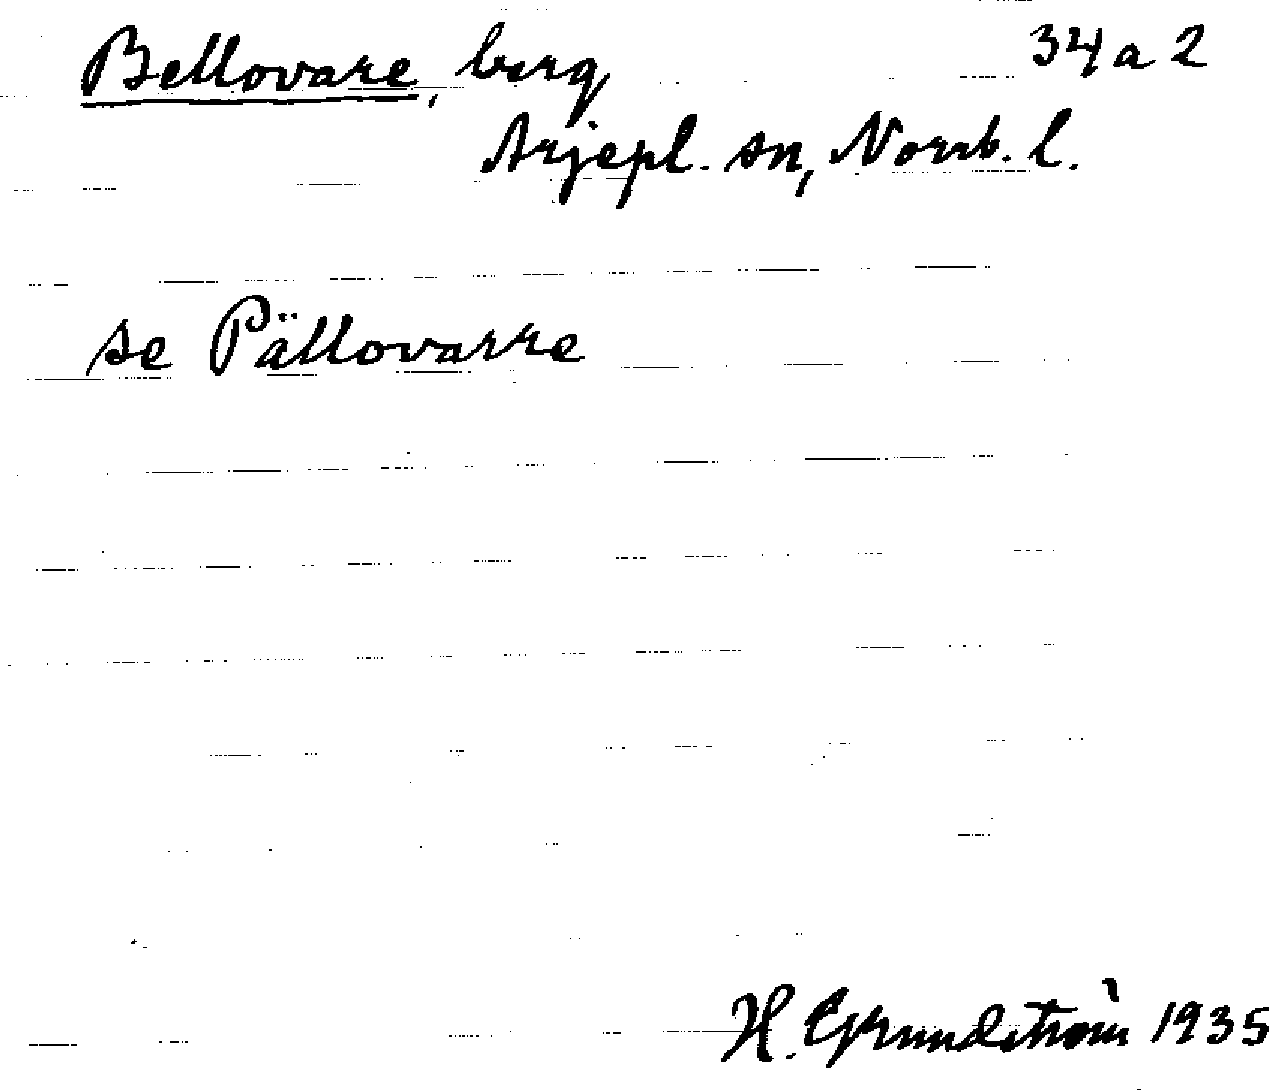 Bellovare, berg, 34 a 2
Arjepl. sn, Norrb. l.
se Pällovarre
H. Grundström 1935